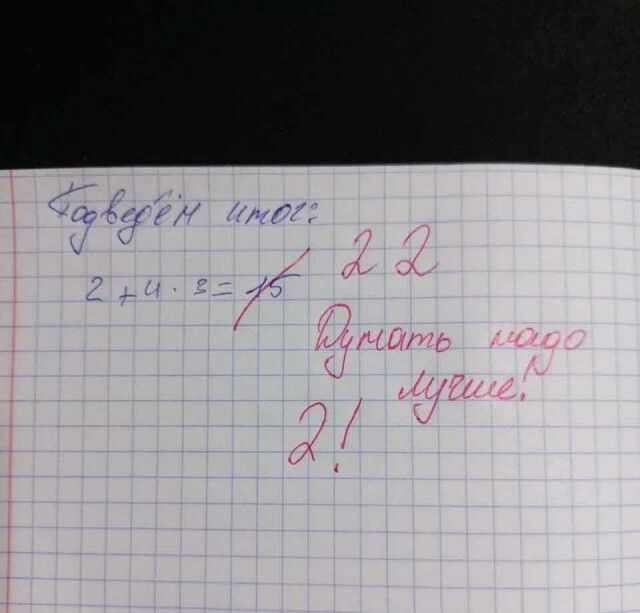 Подведём итог:
2 + 4 · 3 = 15 22
Думать надо
лучше!
2!